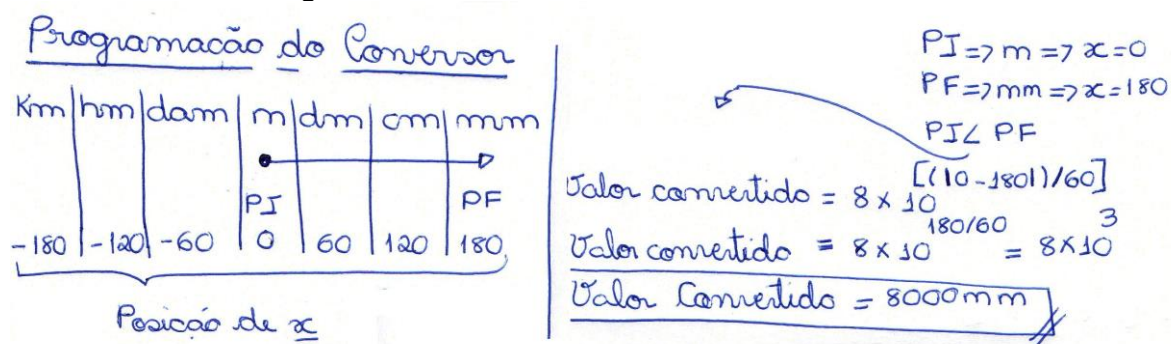 Programação do Conversor
Km|hm|dam|m|dm|cm|mm
PI PF
-180|-120|-60|0|60|120|180
Posição de x
PI=>m=>x=0
PF=>mm=>x=180
PI∠PF
Valor convertido = 8x10^[(|0-180|)/60]
Valor convertido = 8x10^180/60 = 8x10^3
Valor Convertido = 8000mm